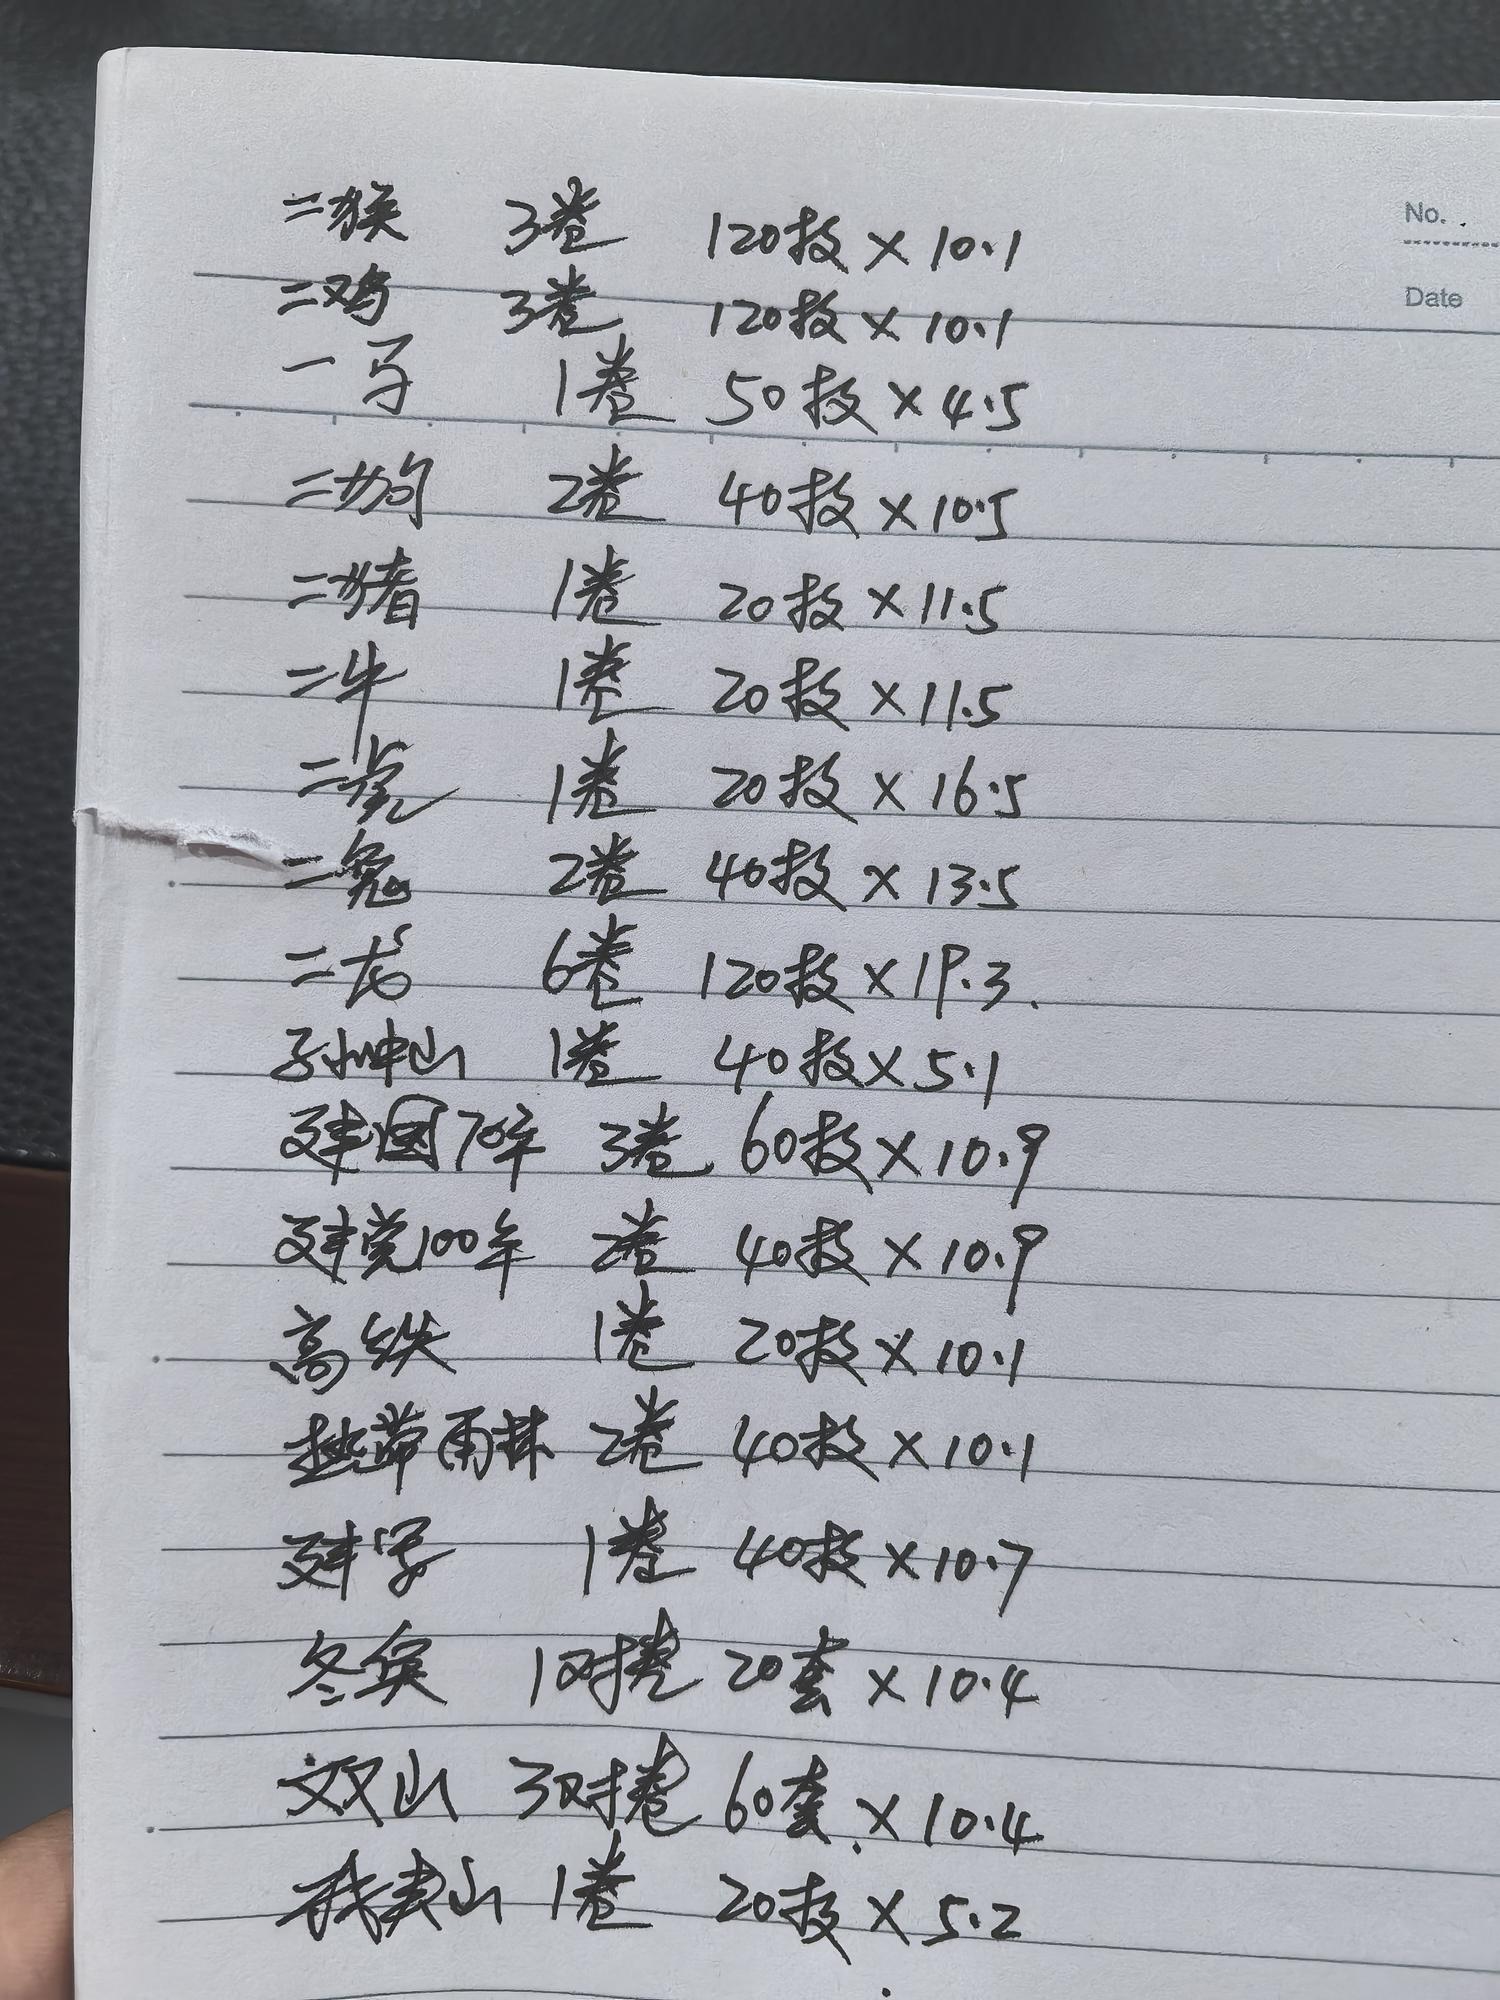 No.
Date
二猴 3卷 120枚×10.1
二鸡 3卷 120枚×10.1
一马 1卷 50枚×4.5
二狗 2卷 40枚×10.5
二猪 1卷 20枚×11.5
二牛 1卷 20枚×11.5
二虎 1卷 20枚×16.5
二兔 2卷 40枚×13.5
二龙 6卷 120枚×19.3.
孙中山 1卷 40枚×5.1
建国70年 3卷 60枚×10.9
建党100年 2卷 40枚×10.9
高铁 1卷 20枚×10.1
热带雨林 2卷 40枚×10.1
建军 1卷 40枚×10.7
冬奥 1对卷 20套×10.4
双山 3对卷 60套×10.4
武夷山 1卷 20枚×5.2